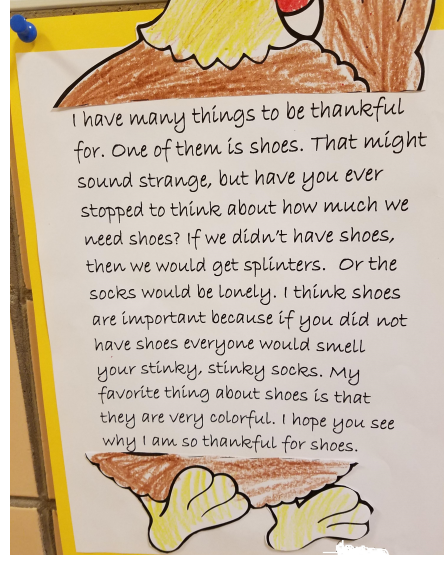 I have many things to be thankful
for. One of them is shoes. That might
sound strange, but have you ever
stopped to think about how much we
need shoes? If we didn't have shoes,
then we would get splinters. Or the
socks would be lonely. I think shoes
are important because if you did not
have shoes everyone would smell
your stinky, stinky socks. My
favorite thing about shoes is that
they are very colorful. I hope you see
why I am so thankful for shoes.